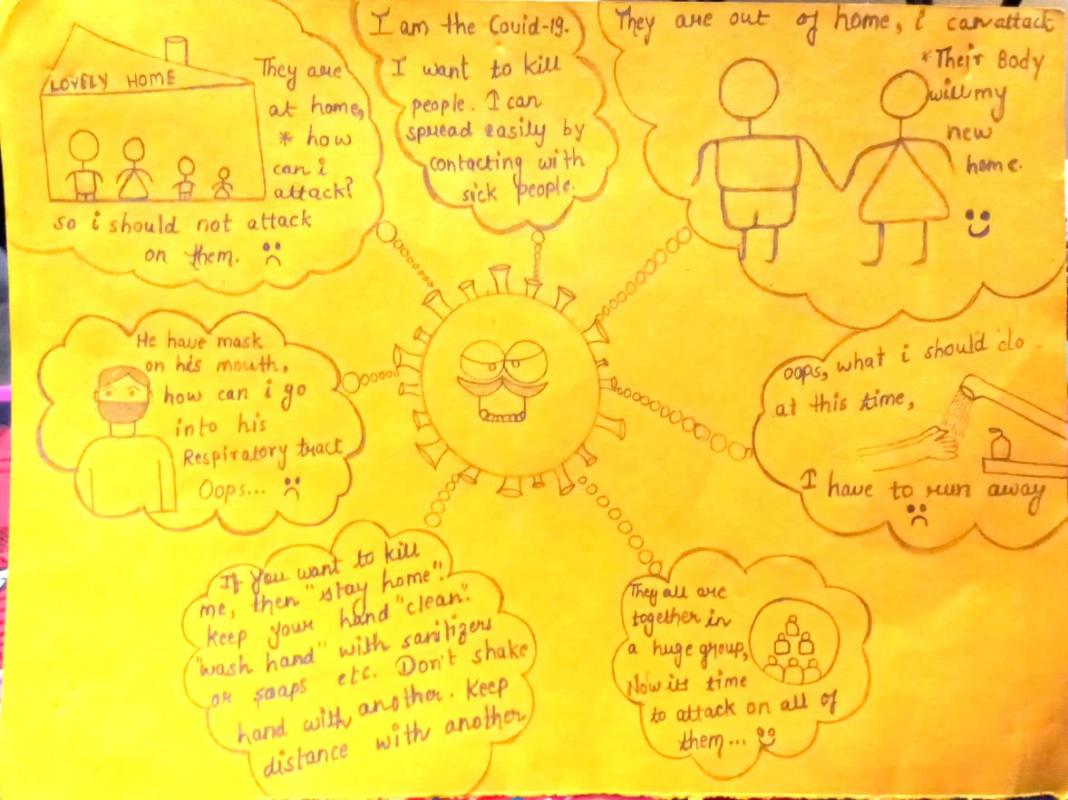 LOVELY HOME
They are
at home,
* how
can i
attack?
so i should not attack
on them.
I am the Covid-19.
I want to kill
people. I can
spread easily by
contacting with
sick people.
They are out of home, i can attack
* Their Body
will my
new
home.
He have mask
on his mouth,
how can i go
into his
Respiratory tract
Oops...
oops, what i should do
at this time,
I have to run away
If you want to kill
me, then "stay home".
keep your hand "clean".
"wash hand" with sanitizers
or soaps etc. Don't shake
hand with another. Keep
distance with another
They all are
together in
a huge group,
Now its time
to attack on all of
them...